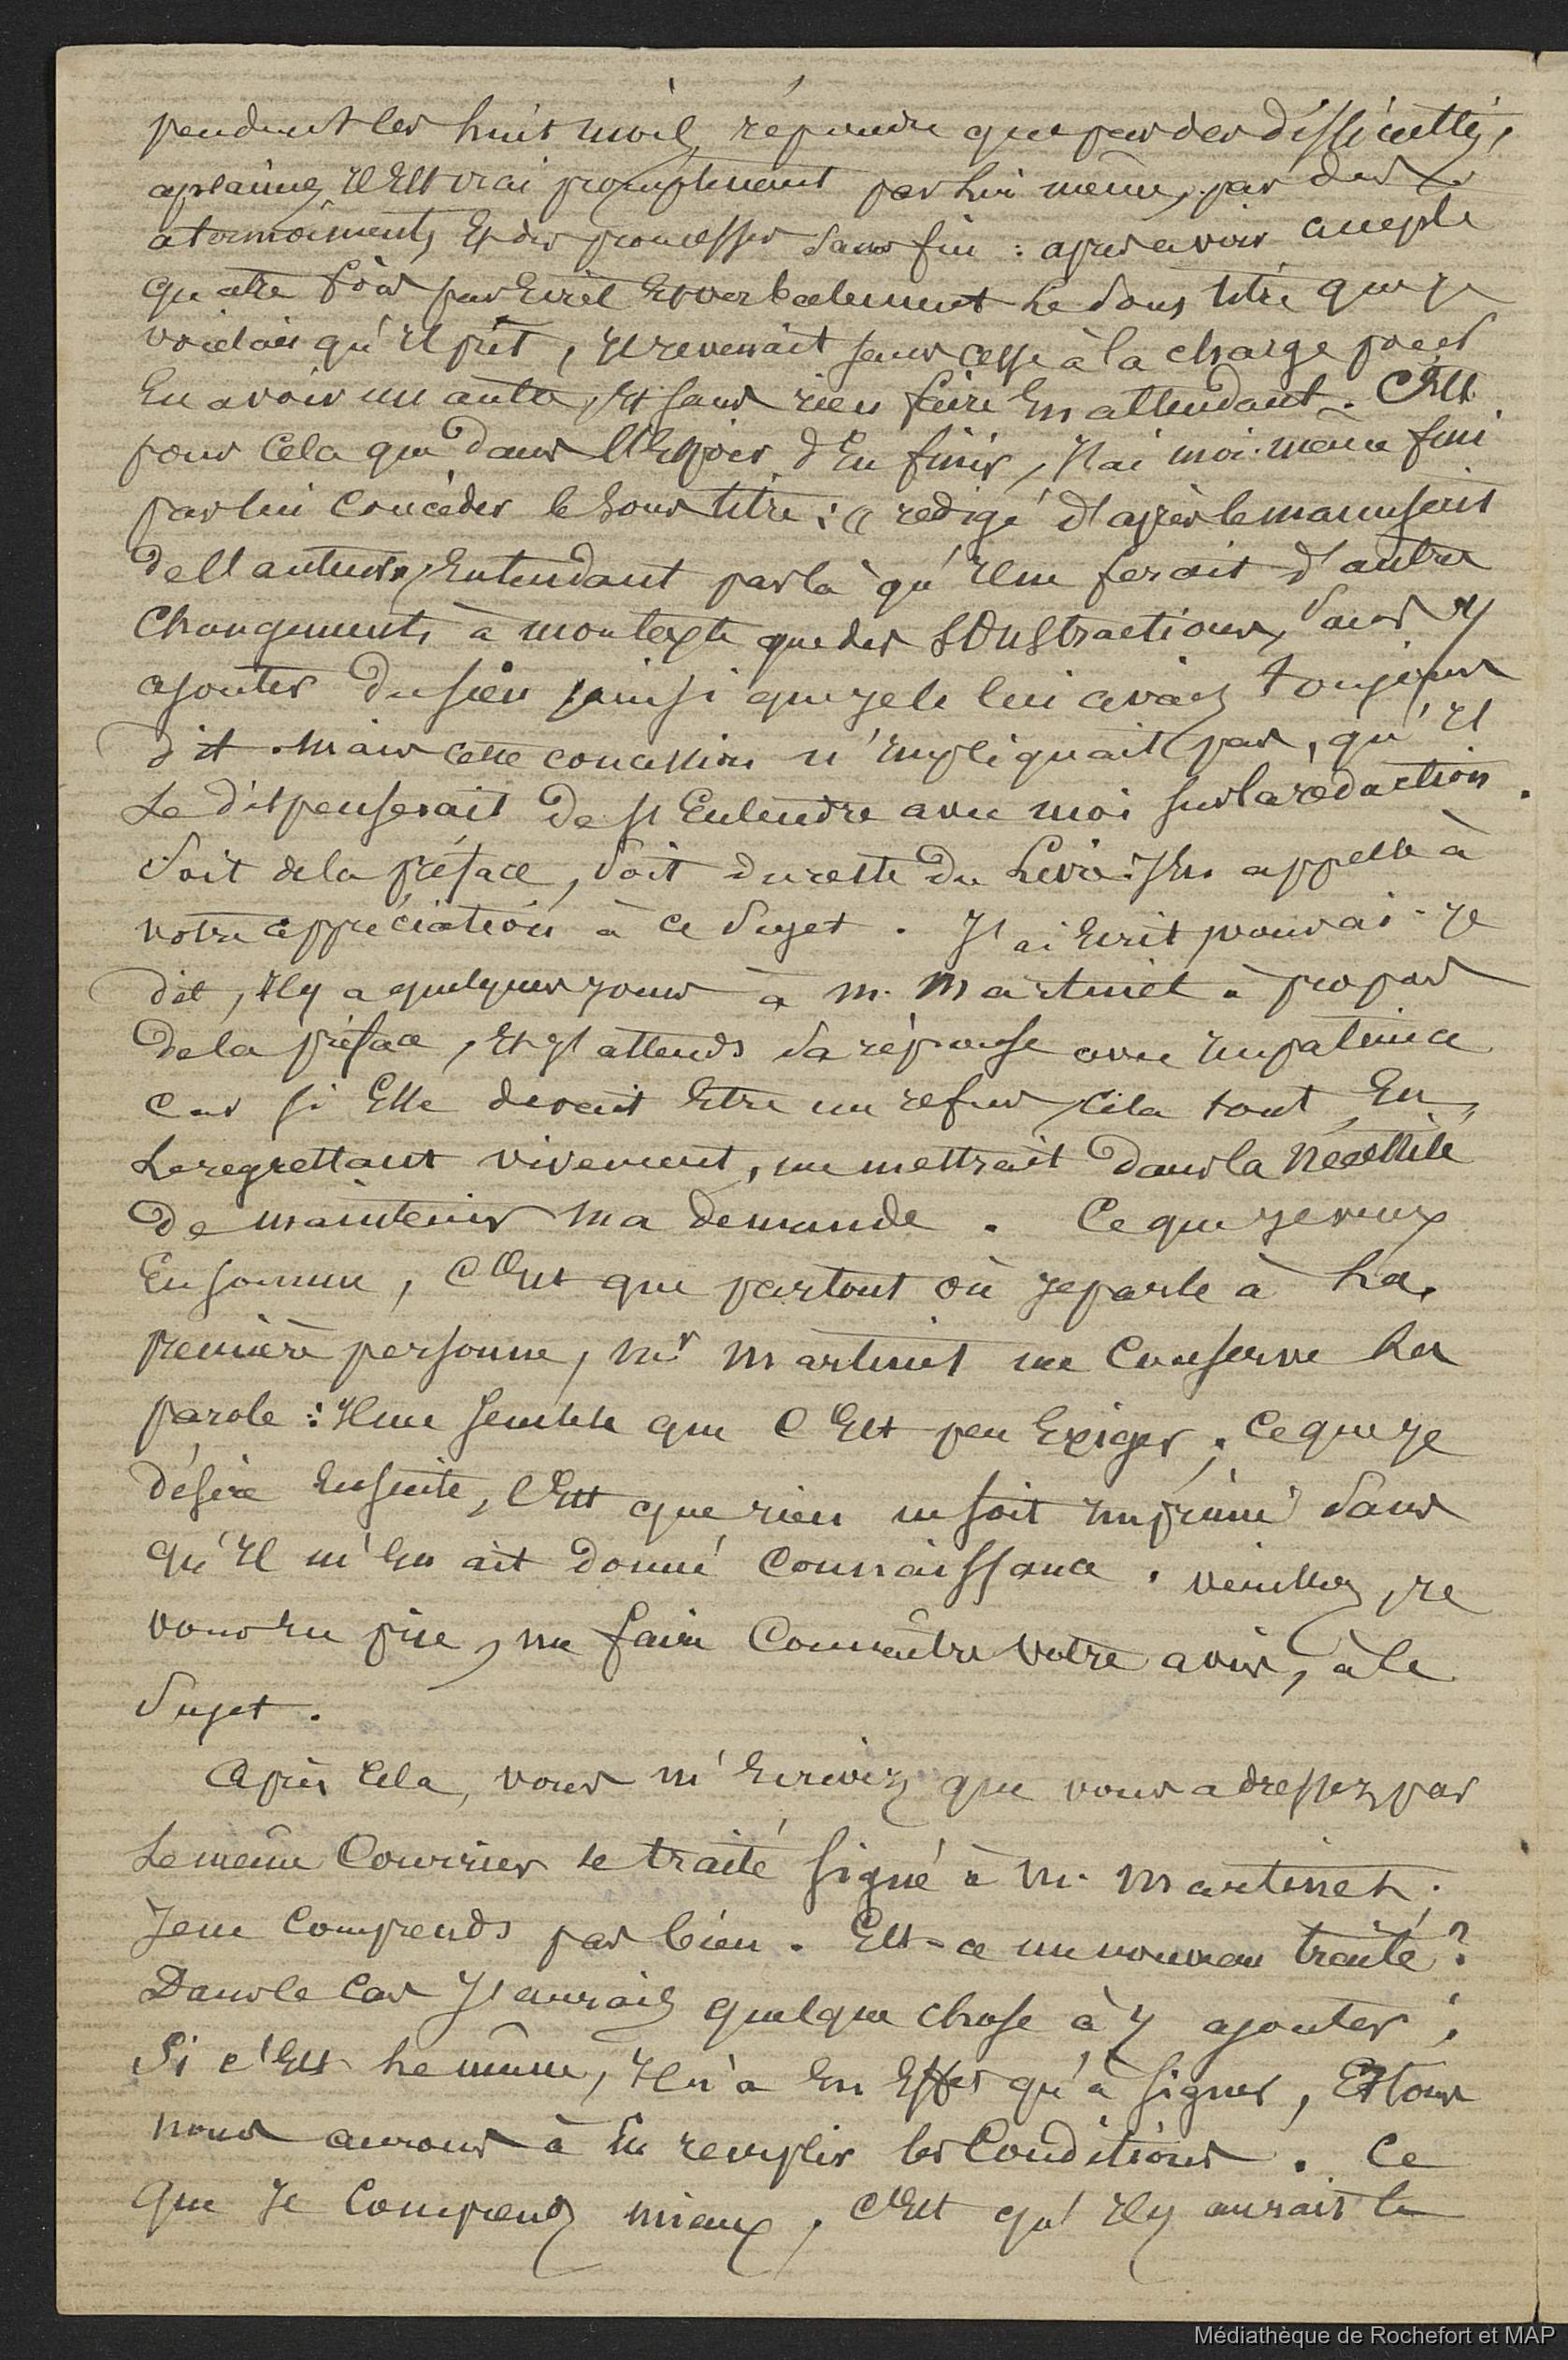 pendant les huit mois, répondu que par des difficultés,
aplanies, il est vrai promptement par lui même, par des
atermoiments, et des promesses sans fin : après avoir accepté
quatre fois par écrit et verbalement le sous titre que je
voulais qu'il prit, il revenait sans cesse à la charge pour
en avoir un autre, et sans rien faire en attendant. C'est
pour cela que dans l'espoir d'en finir, j'ai moi-même fini
par lui concéder le sous titre : « rédigé d'après le manuscrit
de l'auteur », entendant par là qu'il ne ferait d'autres
changements à mon texte que des soustractions, sans y
ajouter du sien, ainsi que je le lui avais toujours
dit. Mais cette concession n'impliquait pas, qu'il
se dispenserait de s'entendre avec moi sur la rédaction.
soit de la préface, soit du reste du livre. J'en appelle à
votre appréciation à ce sujet. J'ai écrit, vous ai-je
dit, il y a quelques jours à M. Martinet à propos
de la préface, et j'attends sa réponse avec impatience
car si elle devait être un refus, cela tout en
le regrettant vivement, me mettrait dans la nécessité
de maintenir ma demande. Ce que je veux
en somme, c'est que partout où je parle à la
première personne, Mr Martinet me conserve la
parole : il me semble que c'est peu exiger ; ce que je
désire ensuite, c'est que rien ne soit imprimé sans
qu'il m'en ait donné connaissance. Veuillez, je
vous en prie, me faire connaître votre avis, à ce
sujet.
Après cela, vous m'écrivez que vous adressez par
le même courrier le traité signé à M. Martinet.
Je ne comprends pas bien. Est-ce un nouveau traité ?
Dans ce cas j'aurais quelque chose à y ajouter ;
Si c'est le même, il n'a en effet qu'à signer, et tous
nous aurons à en remplir les conditions. Ce
que je comprends mieux, c'est qu'il y aurait le